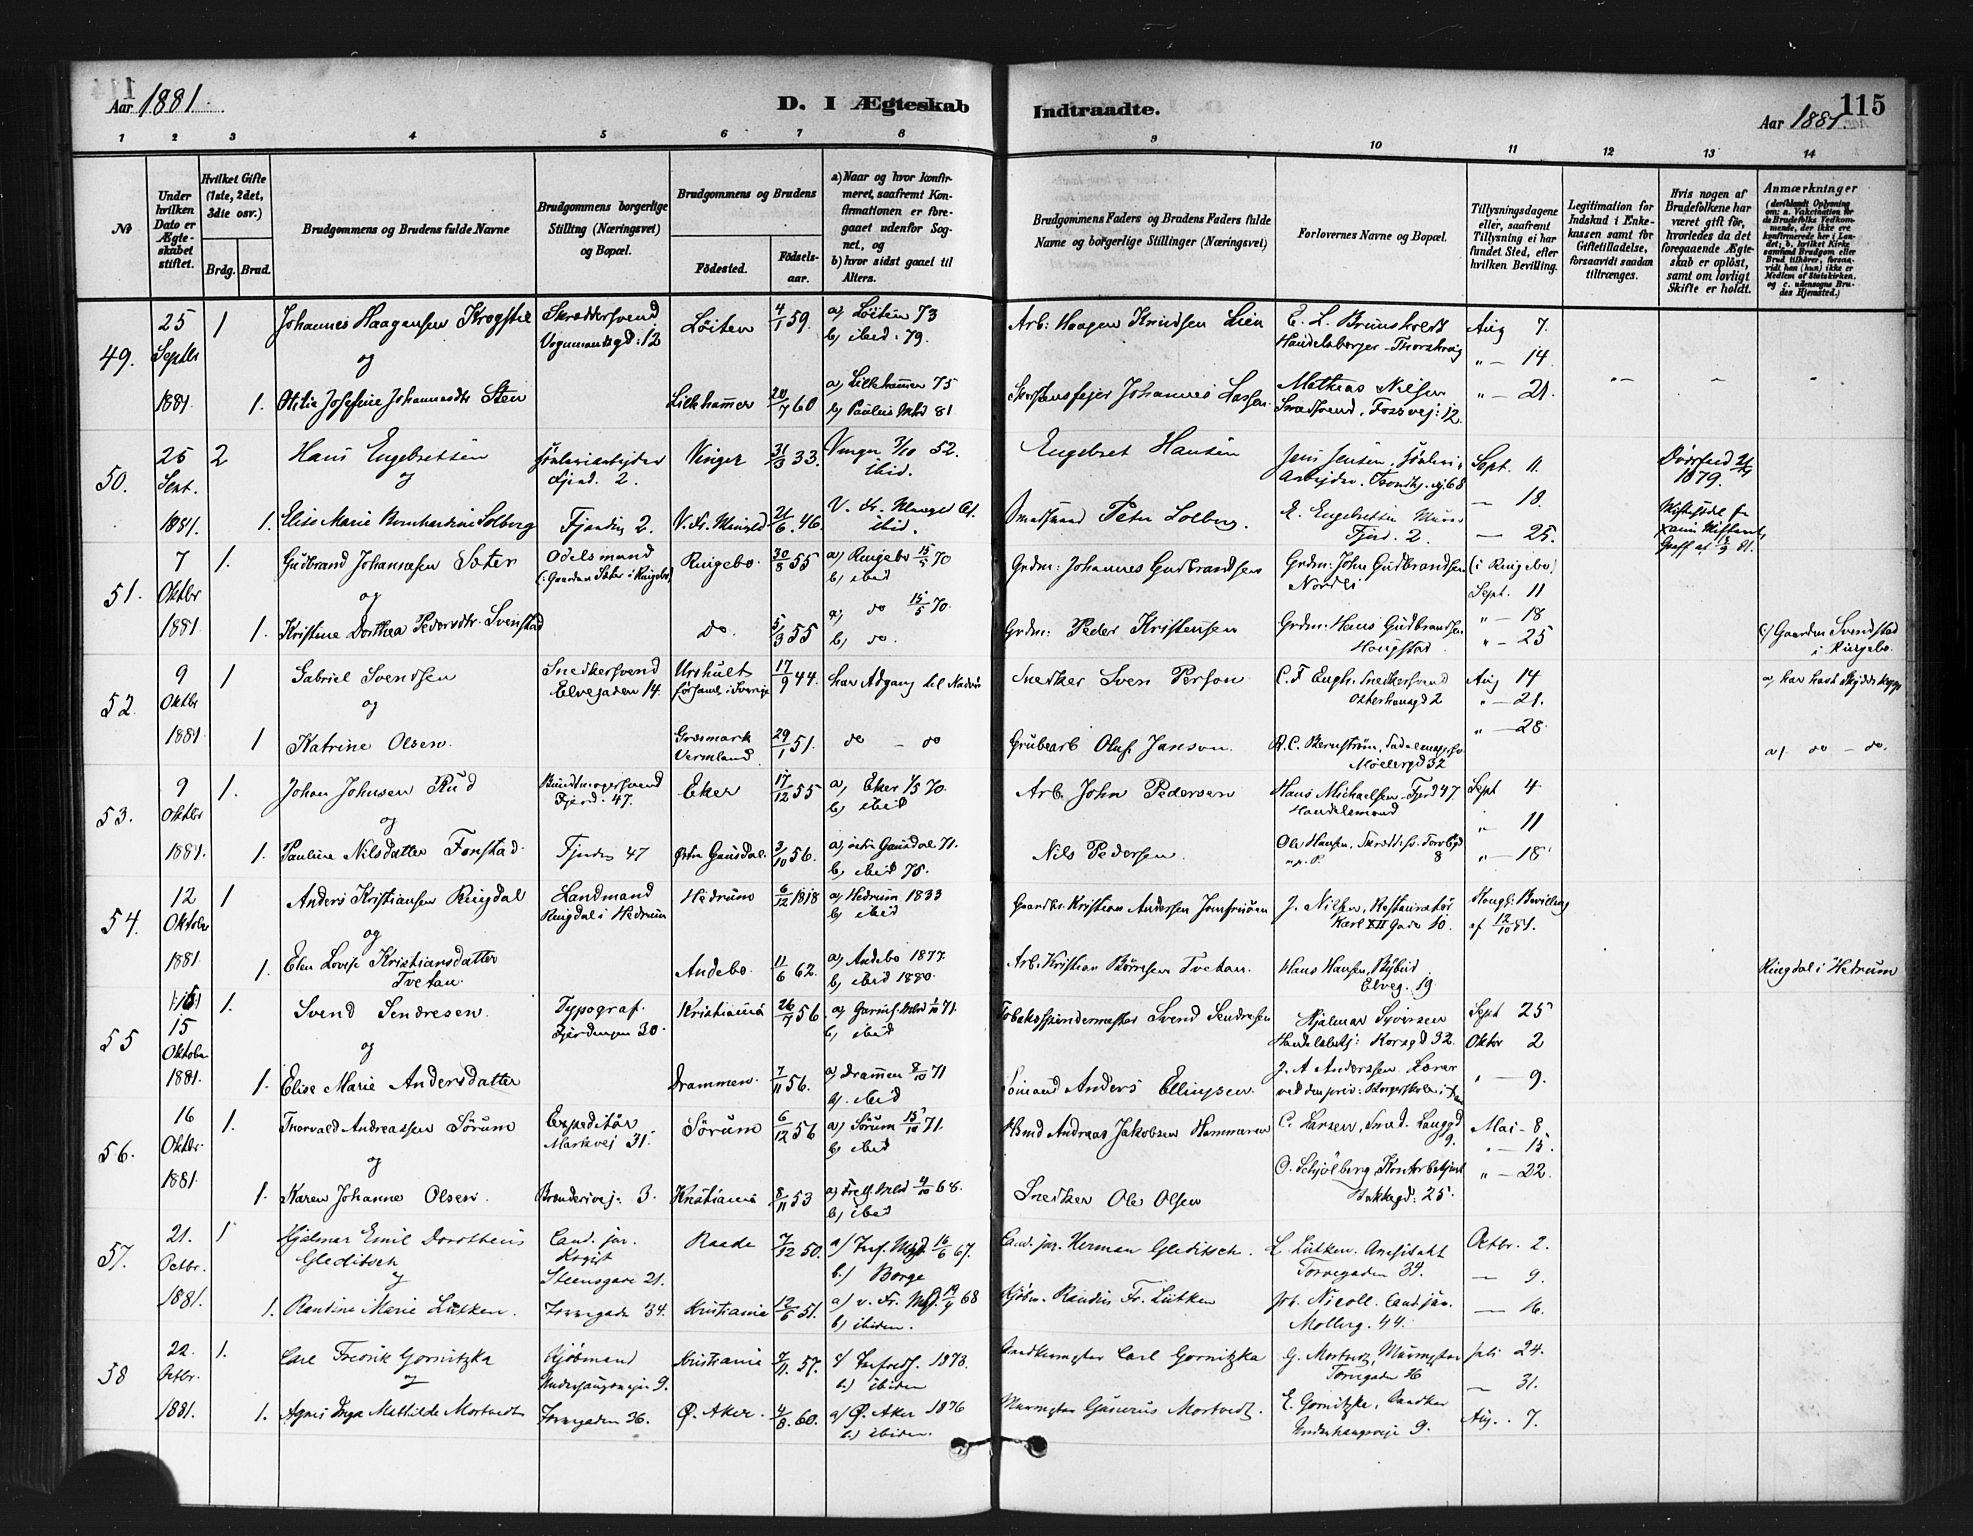 Aar 1881.
D. I Ægteskab Indtraadte.
115
Aar 1881.
1 2 3 4 5 6 7 8 9 10 11 12 13 14
No
Under hvilken Dato er Ægteskabet stiftet.
Hvilket Gifte (1ste, 2det, 3die osv.)
Brdg. Brud.
Brudgommens og Brudens fulde Navne
Brudgommens borgerlige Stilling (Næringsvei) og Bopæl.
Brudgommens og Brudens
Fødested.
Fødselsaar.
a) Naar og hvor konfirmeret, saafremt Konfirmationen er foregaaet udenfor Sognet, og
b) hvor sidst gaaet til Alters.
Brudgommens Faders og Brudens Faders fulde Navne og borgerlige Stillinger (Næringsvei)
Forlovernes Navne og Bopæl.
Tillysningsdagene eller, saafremt Tillysning ei har fundet Sted, efter hvilken Bevilling.
Legitimation for Indskud i Enkekassen samt for Giftetilladelse, forsaavidt saadan tiltrænges.
Hvis nogen af Brudefolkene har været gift før, hvorledes da det foregaaende Ægteskab er opløst, samt om lovligt Skifte er holdt.
Anmærkninger
(deriblandt Oplysning om: a. Vakcination for de Brudefolks Vedkommende, der ikke ere konfirmerede her i Landet; b. hvilket Kirkesamfund Brudgom eller Brud tilhører, forsaavidt han (hun) ikke er Medlem af Statskirken, og c. udensogns Brudes Hjemsted.)
49. 25 Septbr 1881
1 Johannes Haagensen Krogstie Skræddersvend Vognmandsgd: 12 Løiten 4/1 59. a) Løiten 73 b) ibid: 79. Arb: Haagen Knudsen Lien Handelsborger Aug 7.
og " — 14
1. Otilie Josefine Johannesdtr Steen Lillehammer 20/7 60 a) Lillehammer 75 b) Paulus Mhd 81. Skorstensfejer Johannes Larsen Mathias Nilsen Smedsvend, Fossvej: 12. " — 21.
50. 25 Sept. 1881.
2 Hans Engebretsen Fjerd. 2. Vinger 31/3 33. Vinger 3/10 52. ibid. Engebret Hansen Jens Jensen, Sept. 11. 1879.
og — 18
1. Elise Marie Bernhardine Solberg Fjerding 2. V. Fr. Menigd 21/6 46 V. Fr. Menigd 61. ibid. Smedsvend Peter Solberg. E. Engebretsen Murer Fjerd. 2. — 25.
51. 7 Oktbr 1881
1. Gudbrand Johannesen Sæter Odelsmand (: Gaarden Sæter i Ringebo) Ringebo. 30/8 55 a) Ringebo 15/5 70 b) ibid Grdm: Johannes Gudbrandsen Grdm: John Gudbrandsen Nordli (i Ringebo) Sept. 11
og " — 18
1. Kristine Dorthea Pedersdtr. Svenstad do. 5/3 55 a) do 15/5 70. b) do. Grdm: Peder Kristensen Grdm: Hans Gudbrandsen Hougstad " — 25 c) Gaarden Svendstad i Ringebo.
52. 9 Oktbr 1881
1 Gabriel Svendsen Snedkersvend Elvegaden 14. Urshult i Sverige 17/9 44. har Adgang til Nadv. Snedker Sven Person C. F. Engh. Snedkersvend Osterhausgd 2 Aug 14
og " — 21.
1 Katrine Olsen. Gresmark Vermland 29/1 51. do — do Grubearb Oluf Janson. Møllergd 32 " — 28. a) do — do.
53. 9 Oktbr 1881.
1. Johan Johnsen Rud Bundtmagersvend Fjerd. 47. Eker 17/12 55 a) Eker 1/5 70. b) ibid Arb. John Pedersen Hans Michaelsen Fjerd 47 Handelsmand Sept 4
og " 11
1. Pauline Nilsdatter Fonstad. Fjerdin 47 Østre Gausdal. 3/10 56. a) østr Gausdal 71. b) ibid 75. Nils Pedersen. Ole Hansen, Torvbgd 8 " — 18
54. 12 Oktober 1881
1 Anders Kristiansen Ringdal Landmand Ringdal i Hedrum Hedrum 6/12 1818 a) Hedrum 1833 b) ibid Gaardbr. Kristian Andersen J. Nilsen, Restauratør Karl XII Gade 10. Kongl: Bevilling af 12/10 81.
og
1. Elen Lovise Kristiansdatter Tvetan. Andebo. 11/6 62. a) Andebo 1877. b) ibid 1880. Arb. Kristian Børresen Tvetan. Hans Hansen, Bybud Elveg. 19 Ringdal i Hedrum
55 15 Oktober 1881.
1. Svend Sendresen. Typograf. Fjerdingen 30. Kristiania 26/7 56 a) Garnis. Mhd 1/10 71. b) ibid Tobaksspindermester Svend Sendresen Hjalmar Syversen Handelsbetj: Korsgd 32. Sept 25
og Oktbr 2
1. Elise Marie Andersdatter Drammen. 7/11 56. a) Drammen 8/10 71 b) ibid Sømand Anders Ellingsen J. A. Anderssen Lærer " — 9.
56. 16 Oktbr 1881
1. Thorvald Andreassen Sørum Expeditør Markvej 31. Sørum 6/12 56 a) Sørum 15/10 71. b) ibid Andreas Jakobsen Hammeren C. Larsen, Smed. Langgd 9. Mai — 8
og " — 15.
1. Karen Johanne Olsen. Brenderivej. 3. Kristiania 8/11 53 a) Trefl. Mhd 4/10 68. b) ibid Snedker Ole Olsen O. Schjølberg, Kontorbetjent Bakkegd: 25. " — 22.
57. 21. Octbr. 1881.
1 Hjalmar Emil Dorotheus Gleditsch Cand. jur. Kopist Steensgade 21. Raade 7/12 50. a) Tref. Mgd. 16/6 67. b.) Borge Cand. jur. Herman Gleditsch. L. Lütken. Torvegaden 34. Octbr. 2.
og — 9.
1. Randine Marie Lütken. Torvegade 34. Kristiania 12/6 51. a) v. Fr. Mgd. 19/4 68 b) ibidem. Kjøbm. Randius Fr. Lütken Joh. Nicoll. Cand jur. Mollerg. 44. — 16.
58 22. Octbr. 1881.
1. Carl Fredrik Gornitzka Kjøbmand Underhaugsveien 9. Kristiania 7/11 57. a) Trefreds. 1873. b.) ibidem Carl Gornitzka G. Mortvedt, Murmester Torvegaden 36 Juli 24.
og — 31.
1. Agnes Inga Mathilde Mortvedt Torvegaden 36. Ø. Aker. 4/8 60. a) Ø. Aker 1876 b.) ibidem. Murmester Gunerus Mortvedt. E. Gornitzka, Underhaugsveie 9. Aug. 7.